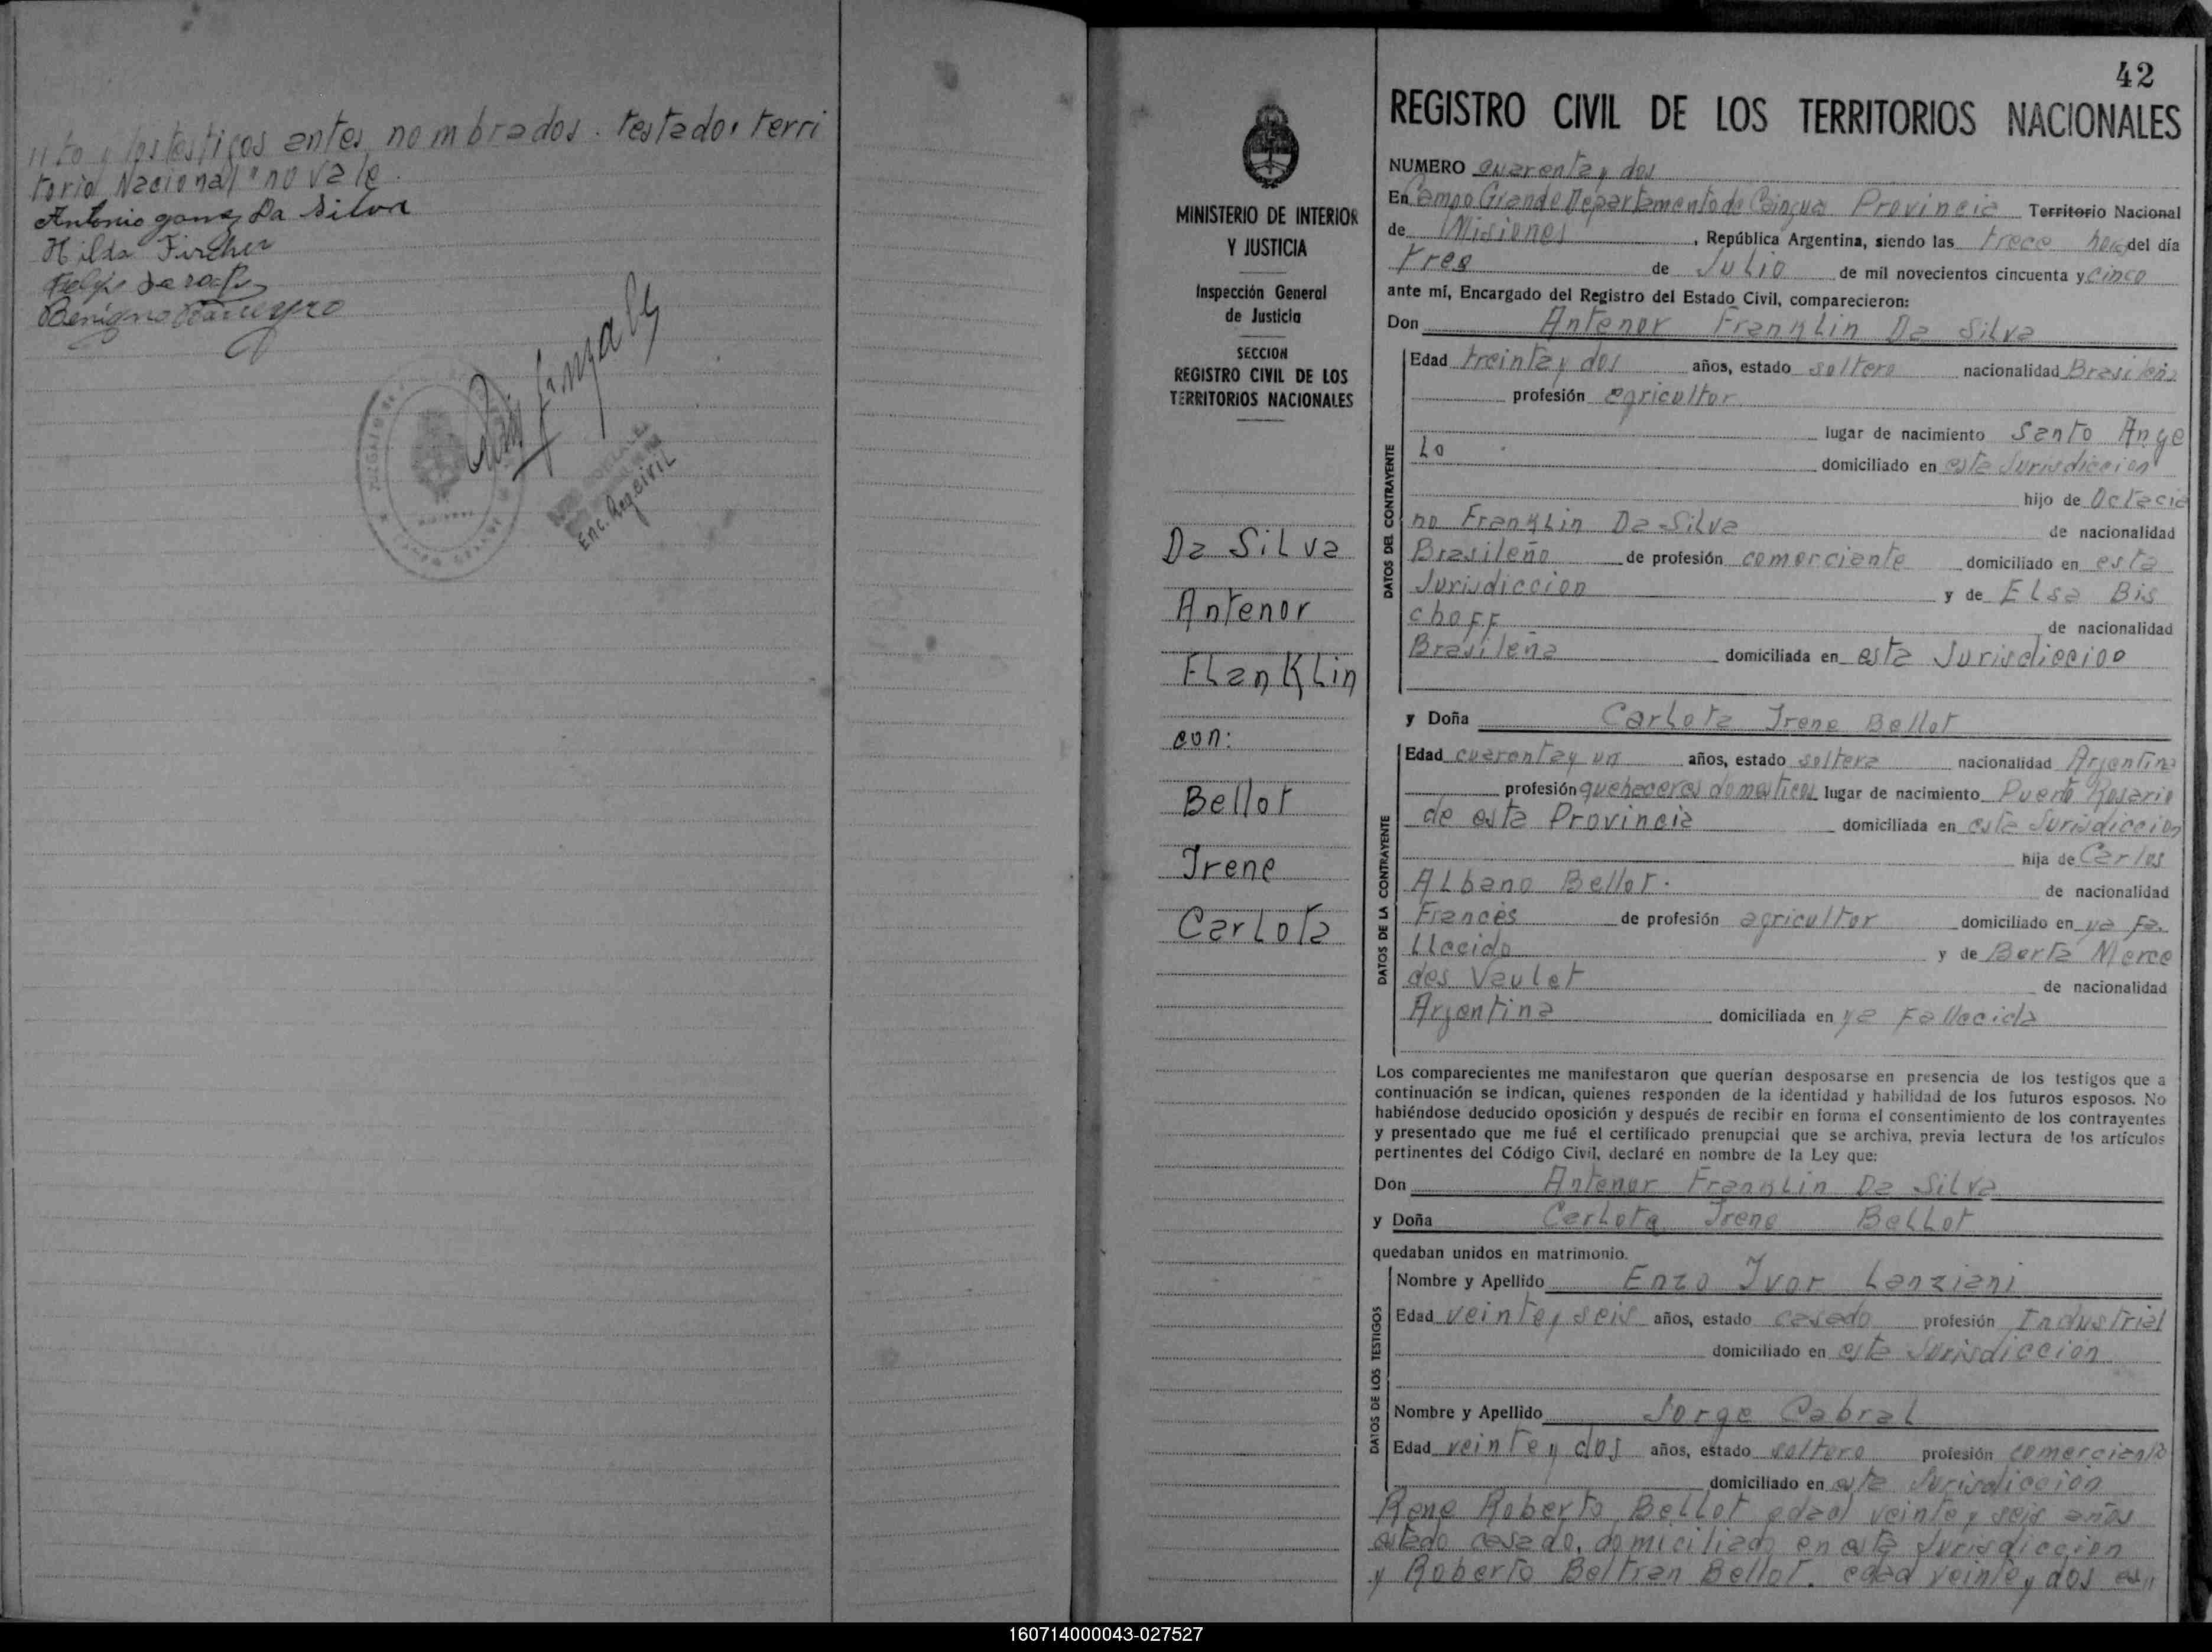 nto y los testigos antes nombrados. testado: terri
torio Nacional "no vale.
Antonio gomez Da Silva
Hilda Fircher
Benigno
Enc. Reg. civil
MINISTERIO DE INTERIOR
Y JUSTICIA
Inspección General
de Justicia
SECCION
REGISTRO CIVIL DE LOS
TERRITORIOS NACIONALES
Da Silva
Antenor
FLanKLin
con:
Bellot
Irene
CarLota
42
REGISTRO CIVIL DE LOS TERRITORIOS NACIONALES
NUMERO cuarenta y dos
En Campo Grande Departamento de Cainguas Provincia Territorio Nacional
de Misiones, República Argentina, siendo las trece horas del día
tres de Julio de mil novecientos cincuenta y cinco
ante mí, Encargado del Registro del Estado Civil, comparecieron:
Don Antenor FranKLin Da Silva
DATOS DEL CONTRAYENTE
Edad treinta y dos años, estado soltero nacionalidad Brasileña
profesión agricultor
lugar de nacimiento Santo Ange
Lo domiciliado en esta Jurisdiccion
hijo de Octacia
no FranKLin Da Silva de nacionalidad
Brasileño de profesión comerciante domiciliado en esta
Jurisdiccion y de ELsa Bis
choFF de nacionalidad
Brasileña domiciliada en esta Jurisdiccion
y Doña CarLota Irene Bellot
DATOS DE LA CONTRAYENTE
Edad cuarenta y un años, estado soltera nacionalidad Argentina
profesión quehaceres domesticos lugar de nacimiento Puerto Rosario
de esta Provincia domiciliada en esta Jurisdiccion
hija de Carlos
ALbano Bellot. de nacionalidad
Francés de profesión agricultor domiciliado en ya Fa.
LLecido y de Berta Merce
des Vaulet de nacionalidad
Argentina domiciliada en ya Fallecida
Los comparecientes me manifestaron que querían desposarse en presencia de los testigos que a
continuación se indican, quienes responden de la identidad y habilidad de los futuros esposos. No
habiéndose deducido oposición y después de recibir en forma el consentimiento de los contrayentes
y presentado que me fué el certificado prenupcial que se archiva, previa lectura de los artículos
pertinentes del Código Civil, declaré en nombre de la Ley que:
Don Antenor FranKLin Da Silva
y Doña CarLota Irene BeLLot
quedaban unidos en matrimonio.
DATOS DE LOS TESTIGOS
Nombre y Apellido Enzo Ivor Lanziani
Edad veinte y seis años, estado casado profesión Industrial
domiciliado en esta Jurisdiccion
Nombre y Apellido Jorge Cabral
Edad veinte y dos años, estado soltero profesión comerciante
domiciliado en esta Jurisdiccion
Rene Roberto BelLot edad veinte y seis años
estado casado, domiciliado en esta Jurisdiccion
y Roberto Beltran Bellot. edad veinte y dos es,,
160714000043-027527